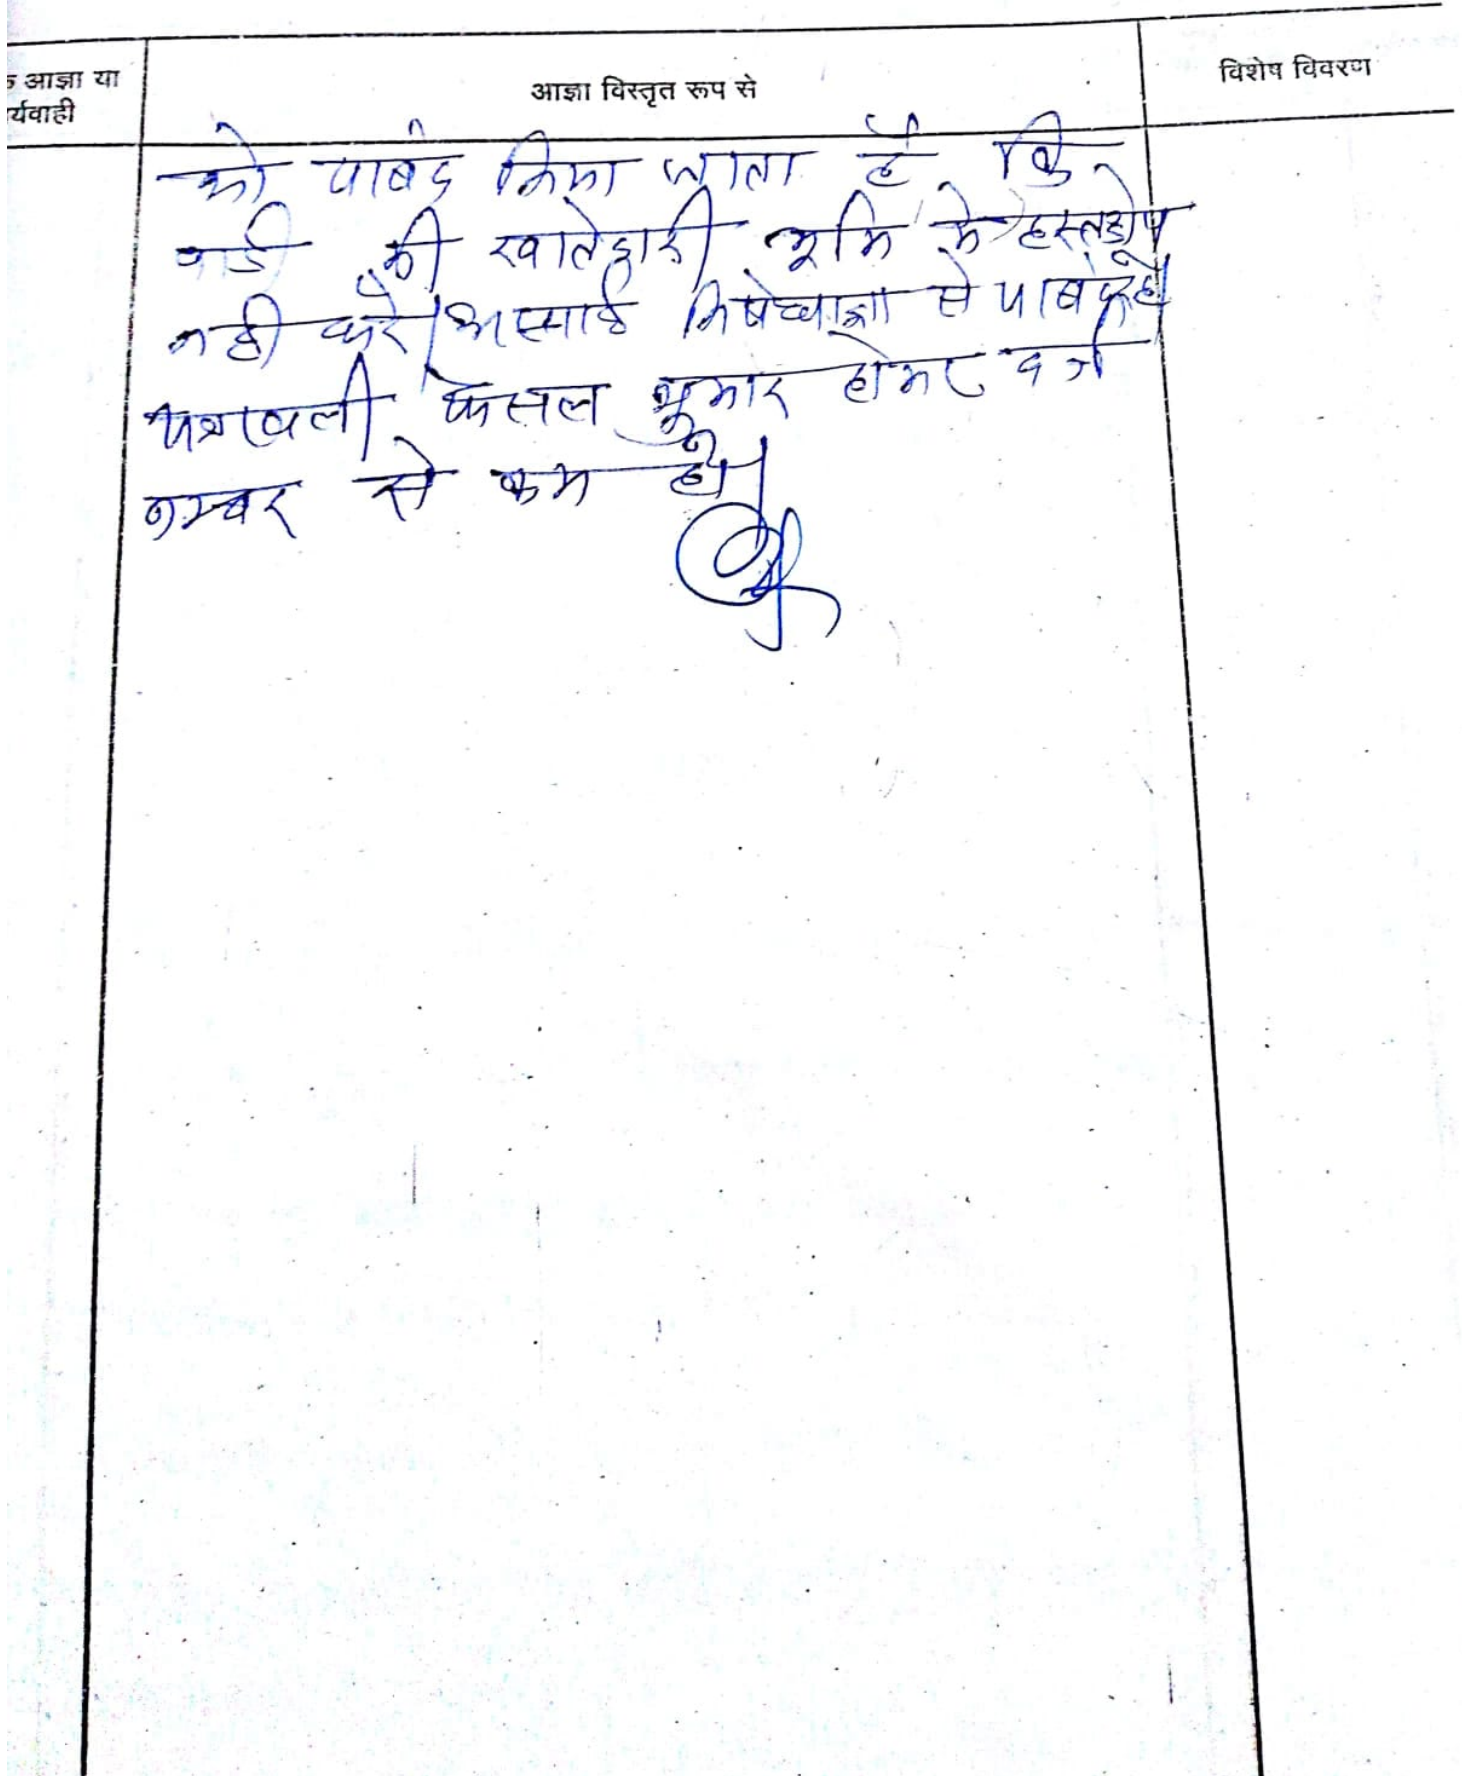 आज्ञा या
र्यवाही
आज्ञा विस्तृत रूप से
विशेष विवरण
को पाबंद किया जाता है कि
वादी की खातेदारी भूमि मे हस्तक्षेप
नही करे। अस्थाई निषेधाज्ञा से पाबंद रहे
पत्रावली फैसल शुमार होकर दर्ज
नम्बर से कम हो।